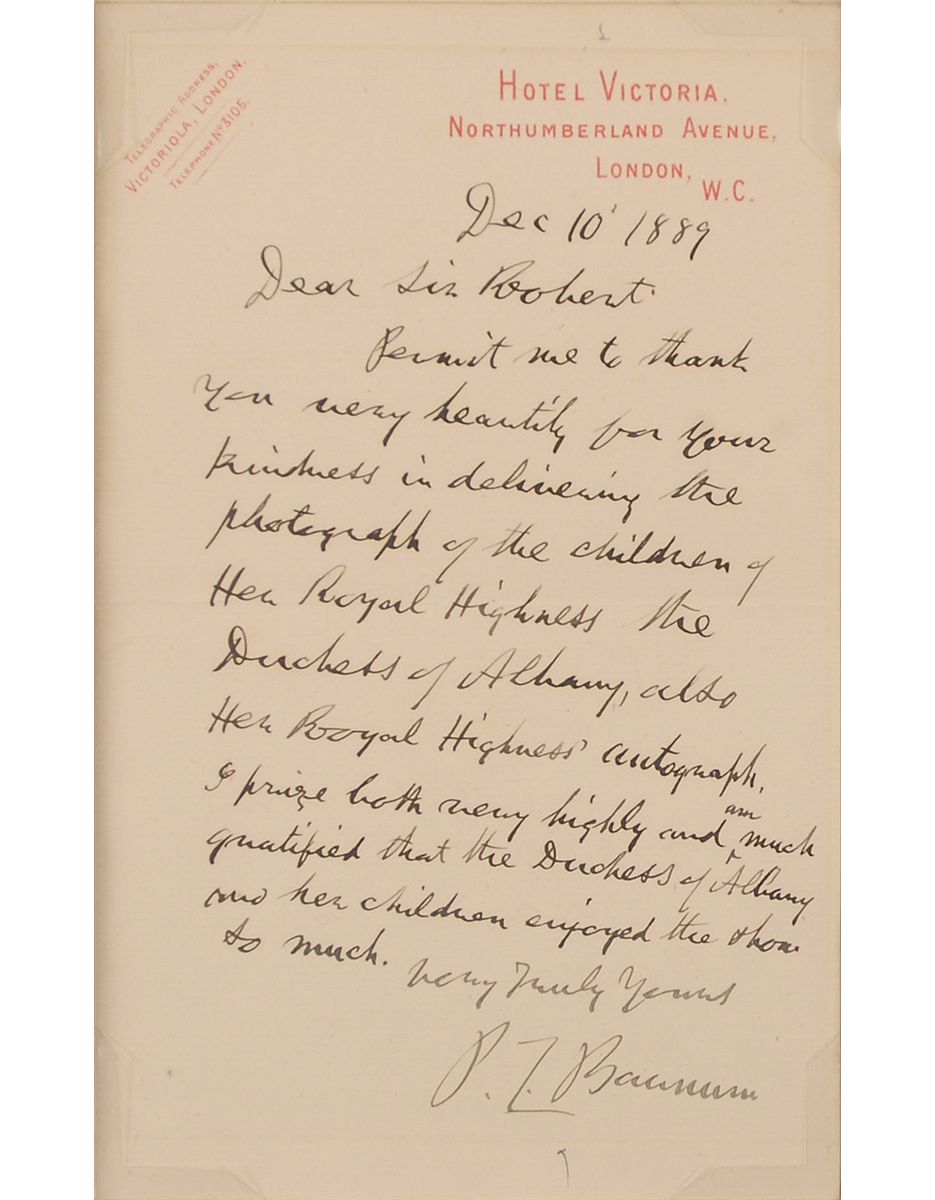 TELEGRAPHIC ADDRESS,
VICTORIOLA, LONDON.
TELEPHONE No 3105.
HOTEL VICTORIA.
NORTHUMBERLAND AVENUE,
LONDON,
W.C.
Dec 10' 1889
Dear Sir Robert
Permit me to thank
you very heartily for your
kindness in delivering the
photograph of the children of
Her Royal Highness the
Duchess of Albany, also
Her Royal Highness' autograph.
I prize both very highly and am much
gratified that the Duchess of Albany
and her children enjoyed the show
so much.
Very Truly Yours
P. T. Barnum